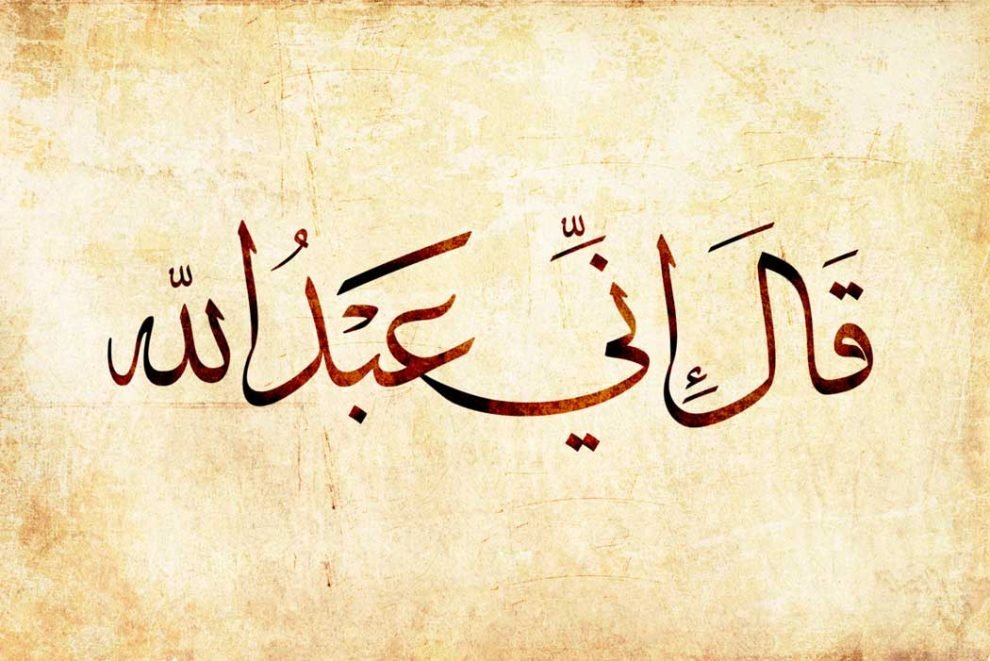 قَالَ إِنِّي عَبْدُ اللّٰه